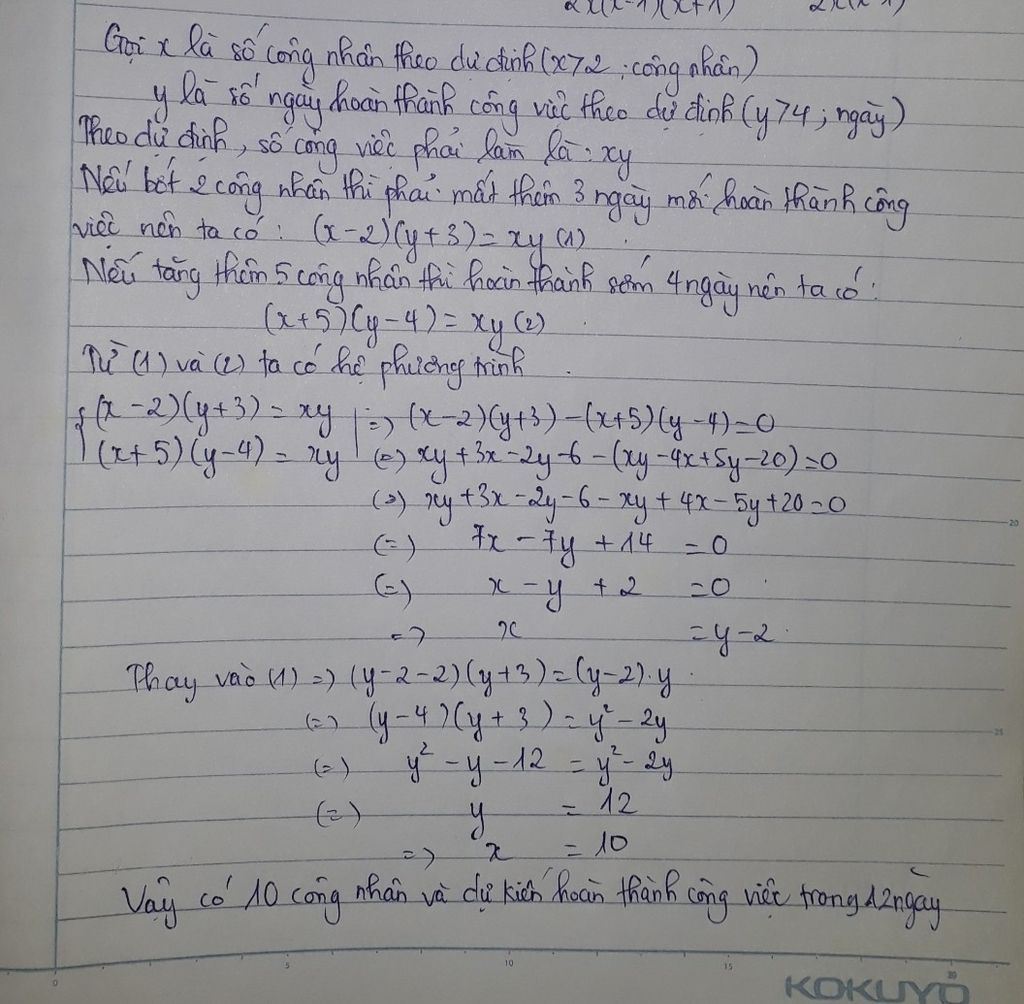 2x(x-1)(x+1) 2x(x-1)
Gọi x là số công nhân theo dự định (x>2; công nhân)
y là số ngày hoàn thành công việc theo dự định (y>4; ngày)
Theo dự định, số công việc phải làm là: xy
Nếu bớt 2 công nhân thì phải mất thêm 3 ngày mới hoàn thành công
việc nên ta có: (x-2)(y+3)=xy (1)
Nếu tăng thêm 5 công nhân thì hoàn thành sớm 4 ngày nên ta có:
(x+5)(y-4)=xy (2)
Từ (1) và (2) ta có hệ phương trình
{(x-2)(y+3)=xy |=> (x-2)(y+3)-(x+5)(y-4)=0
(x+5)(y-4)=xy (=) xy+3x-2y-6-(xy-4x+5y-20)=0
(=) xy+3x-2y-6-xy+4x-5y+20=0
(=) 7x-7y+14 =0
(=) x-y+2 =0
=> x =y-2
Thay vào (1) => (y-2-2)(y+3)=(y-2).y
(=) (y-4)(y+3)=y²-2y
(=) y²-y-12 =y²-2y
(=) y = 12
=> x = 10
Vậy có 10 công nhân và dự kiến hoàn thành công việc trong 12 ngày
5 10 15 20
20
25
KOKUYO